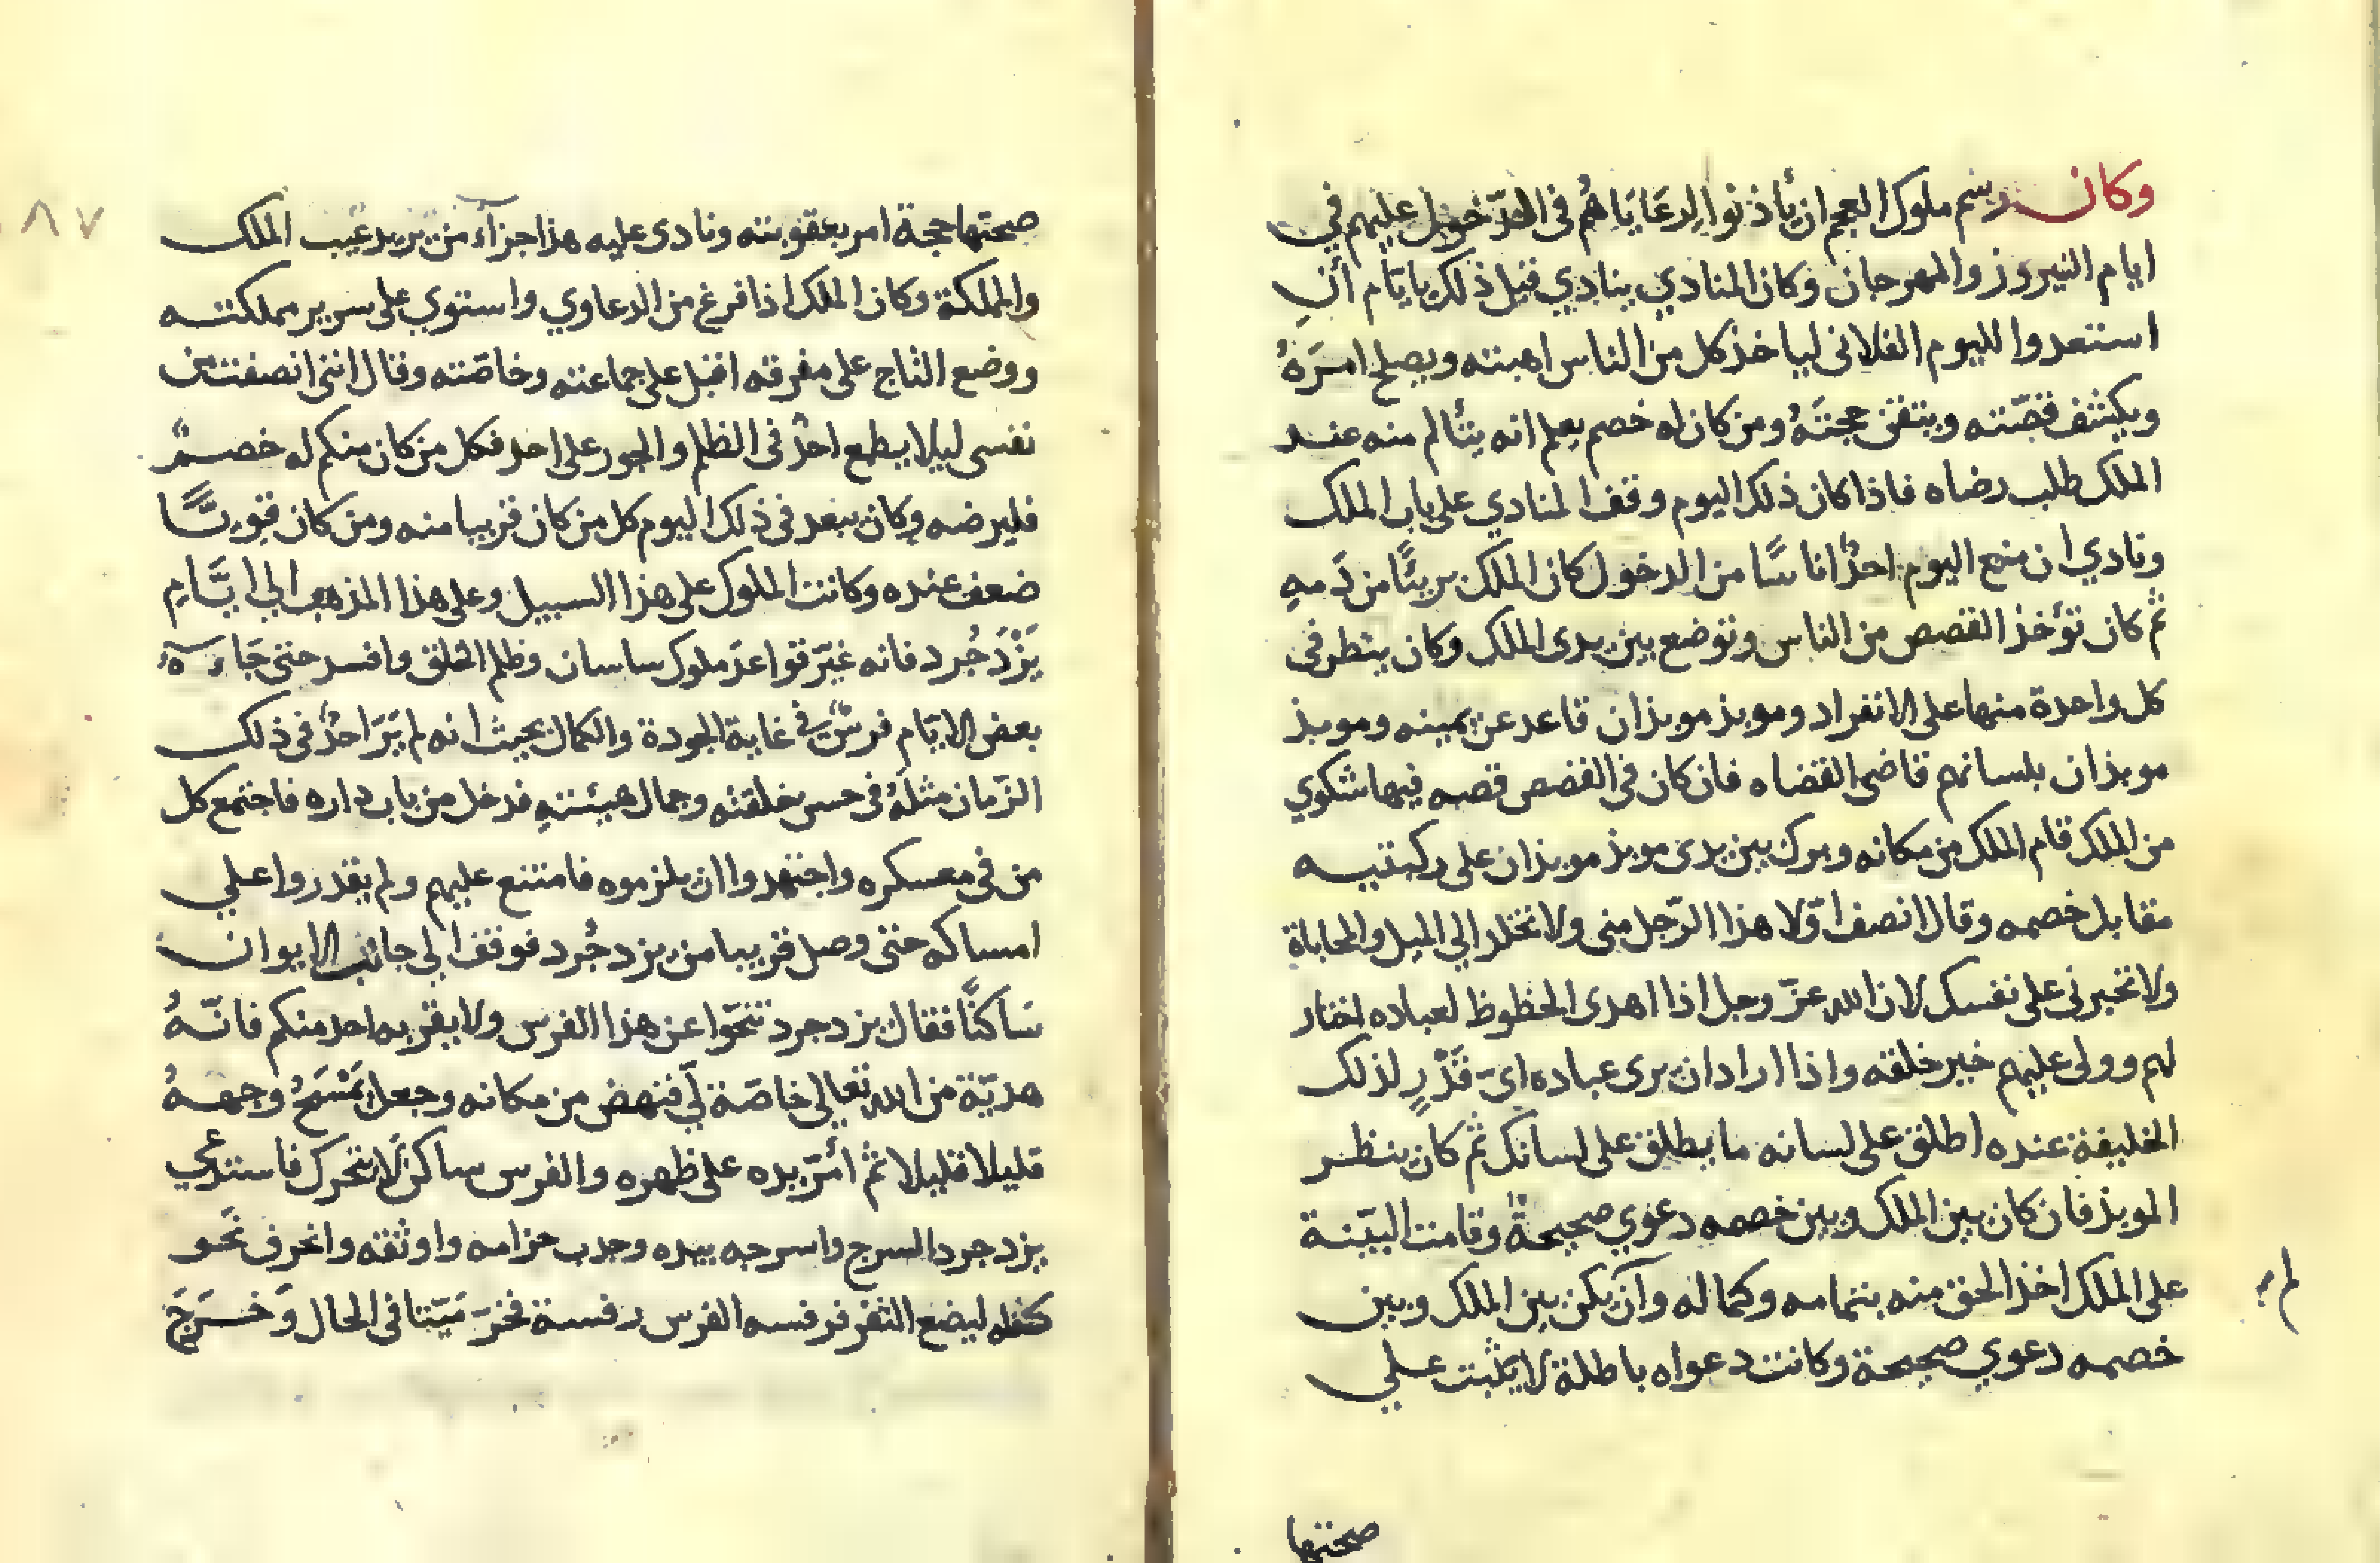 وكان رسم ملوك العجم ان يأذنوا لرعاياهم في الدخول عليهم في
ايام النيروز والمهرجان وكان المنادي ينادي قبل ذلك بايام أن
استعدوا لليوم الفلاني لياخذ كل من الناس اهبته ويصلح امره
ويكشف قصّته ويتقن حجته ومن كان له خصم يعلم انه يتألم منه عند
الملك طلب رضاه فاذا كان ذلك اليوم وقف المنادي على باب الملك
ونادي ان منع اليوم احدٌ اناسًا من الدخول كان الملك بريئًا من دمه
ثم كان تؤخذ القصص من الناس وتوضع بين يدى الملك وكان ينظر في
كل واحدة منها على الانفراد وموبذ موبذان قاعد عن يمينه وموبذ
موبذان بلسانهم قاضي القضاه فان كان في القصص قصه فيها شكوي
من الملك قام الملك من مكانه وبرك بين يدى موبذ موبذان على ركبتيه
مقابل خصمه وقال انصف اوّلا هذا الرّجل منى ولا تخلد الي الميل والمحاباة
ولا تخيرني على نفسك لان الله عزّ وجل اذا اهدى الحظوظ لعباده اختار
لهم وولى عليهم خير خلقه واذا اراد ان يرى عباده اىّ قَدْرٍ لذلك
الخليفة عنده اطلق على لسانه ما يطلق على لسانك ثم كان ينظر
الموبذ فان كان بين الملك وبين خصمه دعوي صحيحةٌ وقامت البيّنة
على الملك اخذ الحق منه بتمامه وكماله وآن يكن بين الملك وبين
لم
خصمه دعوي صحيحة وكانت دعواه باطلة لا يثبت علي
صحتها
٨٧
صحتها حجة امر بعقوبته ونادى عليه هذا جزاء من يريد عيب الملك
والمملكة وكان الملك اذا فرغ من الدعاوي واستوي على سرير مملكته
ووضع التاج على مفرقه اقبل على جماعته وخاصّته وقال انني انصفت من
نفسى ليلا يطمع احدٌ في الظلم والجور على احد فكل من كان منكم له خصمٌ
فليرضه وكان يبعد في ذلك اليوم كل من كان قريبا منه ومن كان قويًّا
ضعف عنده وكانت الملوك على هذا السبيل وعلى هذا المذهب الي ايّام
يَزْدَجُرد فانه غيّر قواعد ملوك ساسان وظلم الخلق وافسد حتى جاءه
بعض الايّام فرسٌ في غاية الجودة والكمال بحيث انه لم يَرَ احدٌ في ذلك
الزّمان مثلهُ في حسن خلقته وجمال هيئته فدخل من باب داره فاجتمع كل
من في معسكره واجتهدوا ان يلزموه فامتنع عليهم ولم يقدروا علي
امساكه حتى وصل قريبا من يزدجُرد فوقف الي جانب الايوان
ساكنًا فقال يزدجرد تنحّوا عن هذا الفرس ولا يقربه احد منكم فانّهُ
هديّة من الله تعالي خاصّة لي فنهض من مكانه وجعل يَمْسَحُ وجههُ
قليلا قليلا ثم أمرّ يده على ظهره والفرس ساكن لا يتحرك فاستدعي
يزدجرد السرج واسرجه بيده وجدب حزامه واوثقه وانحرف نَحو
كفله ليضع الثفر فرفسه الفرس رفسة فخرّ مَيّتا في الحال وَخَرَجَ